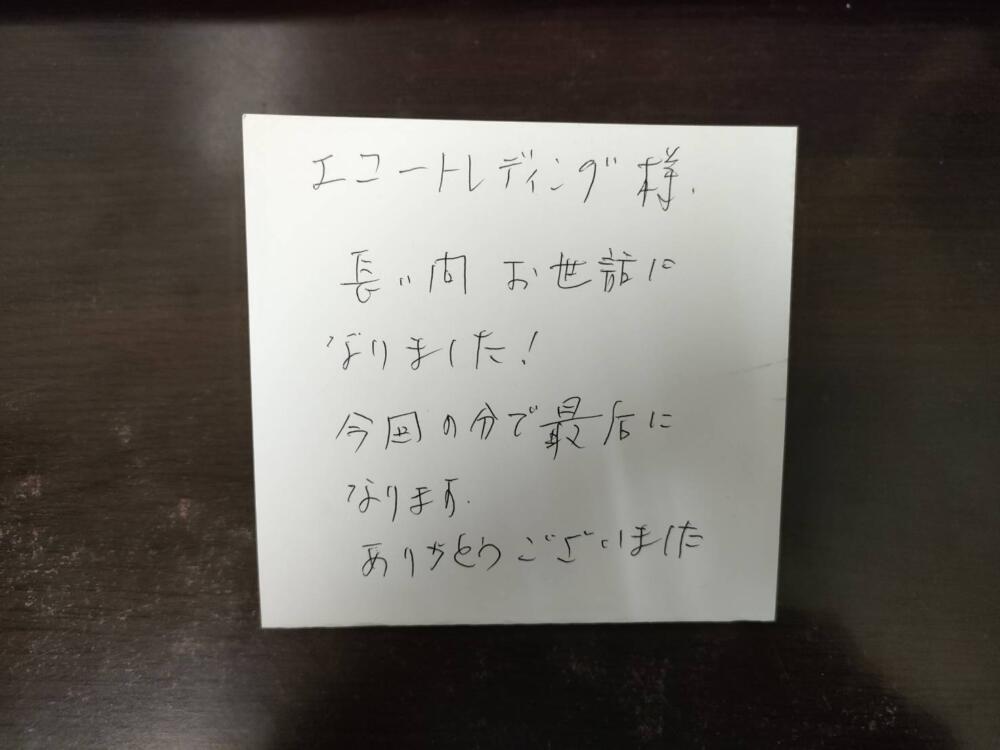 エコートレディング様.
長い間 お世話に
なりました!
今回の分で最后に
なります.
ありがとうございました